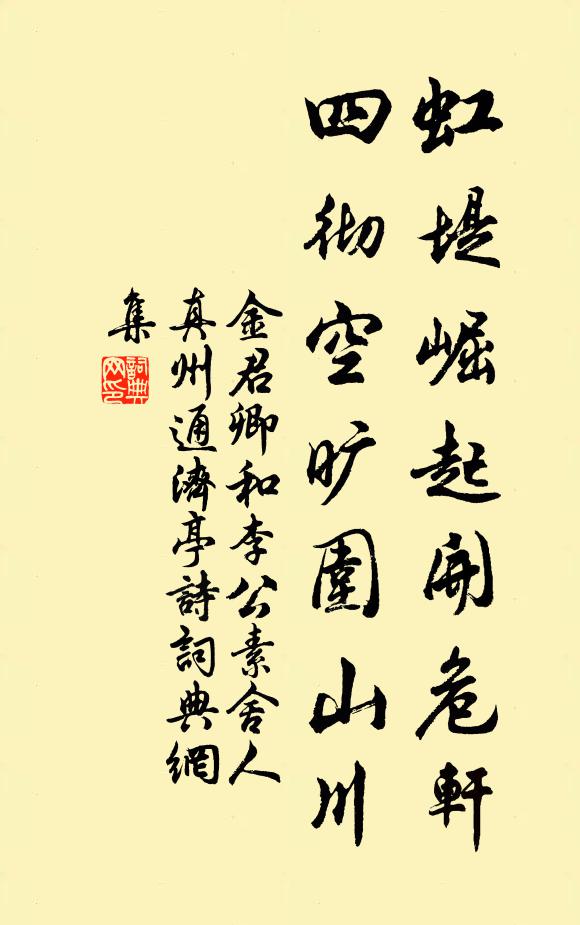 虹堤崛起開危軒
四彻空旷圍山川
金君卿和李公素舍人
真州通濟亭詩詞典網
集
詞典
网印